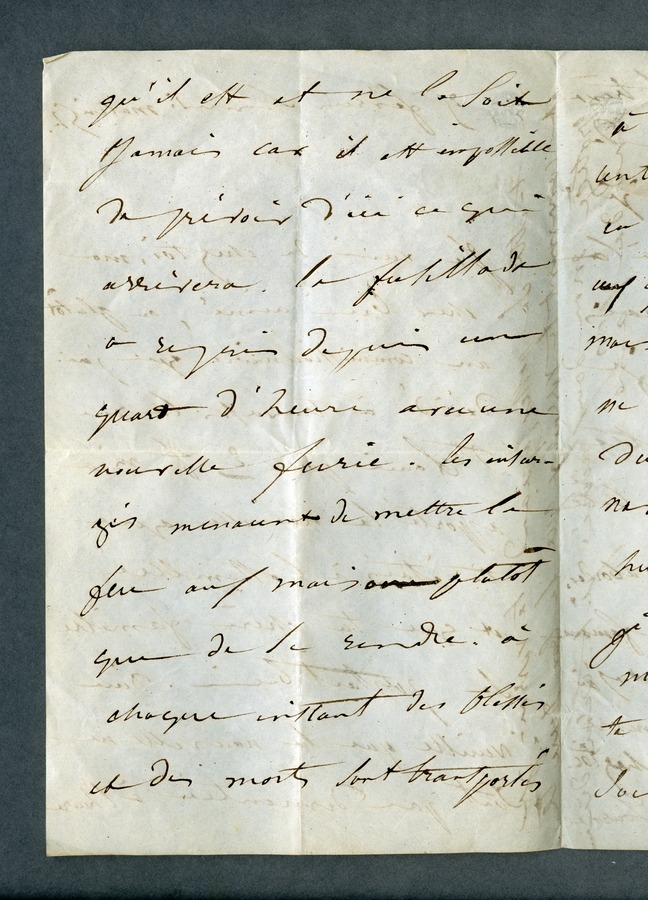 qu'il est et ne le soit
jamais car il est impossible
de prévoir d'ici ce qui
arrivera. la fusillade
a repris depuis un
quart d'heure avec une
nouvelle furie. les insur-
gés menacent de mettre le
feu aux maisons plutôt
que de se rendre. à
chaque instant des blessés
et des morts sont transportés
à
ne